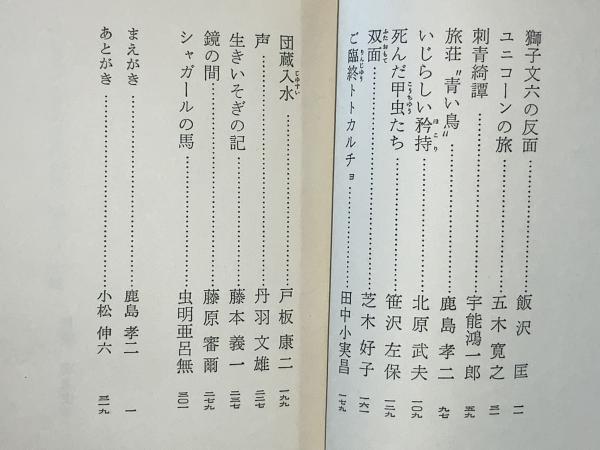 獅子文六の反面……………飯沢 匡 一一
ユニコーンの旅……………五木 寛之 三一
刺青綺譚……………宇能鴻一郎 五九
旅荘〝青い鳥〟……………鹿島 孝二 九七
いじらしい矜持……………北原 武夫 一〇九
死んだ甲虫たち……………笹沢 左保 一二九
双面……………芝木 好子 一六一
ご臨終トトカルチョ……………田中小実昌 一七九
団蔵入水……………戸板 康二 一九九
声……………丹羽 文雄 二一七
生きいそぎの記……………藤本 義一 二三七
鏡の間……………藤原 審爾 二七九
シャガールの馬……………虫明亜呂無 三〇一
まえがき……………鹿島 孝二 一
あとがき……………小松 伸六 三一九